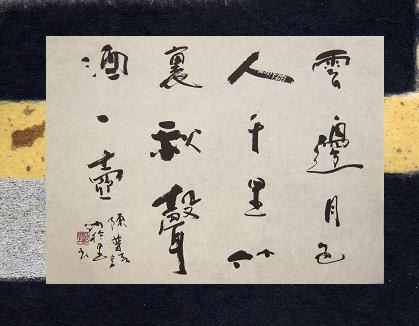 雲邊月色
人千里竹
裏秋聲
酒一壺